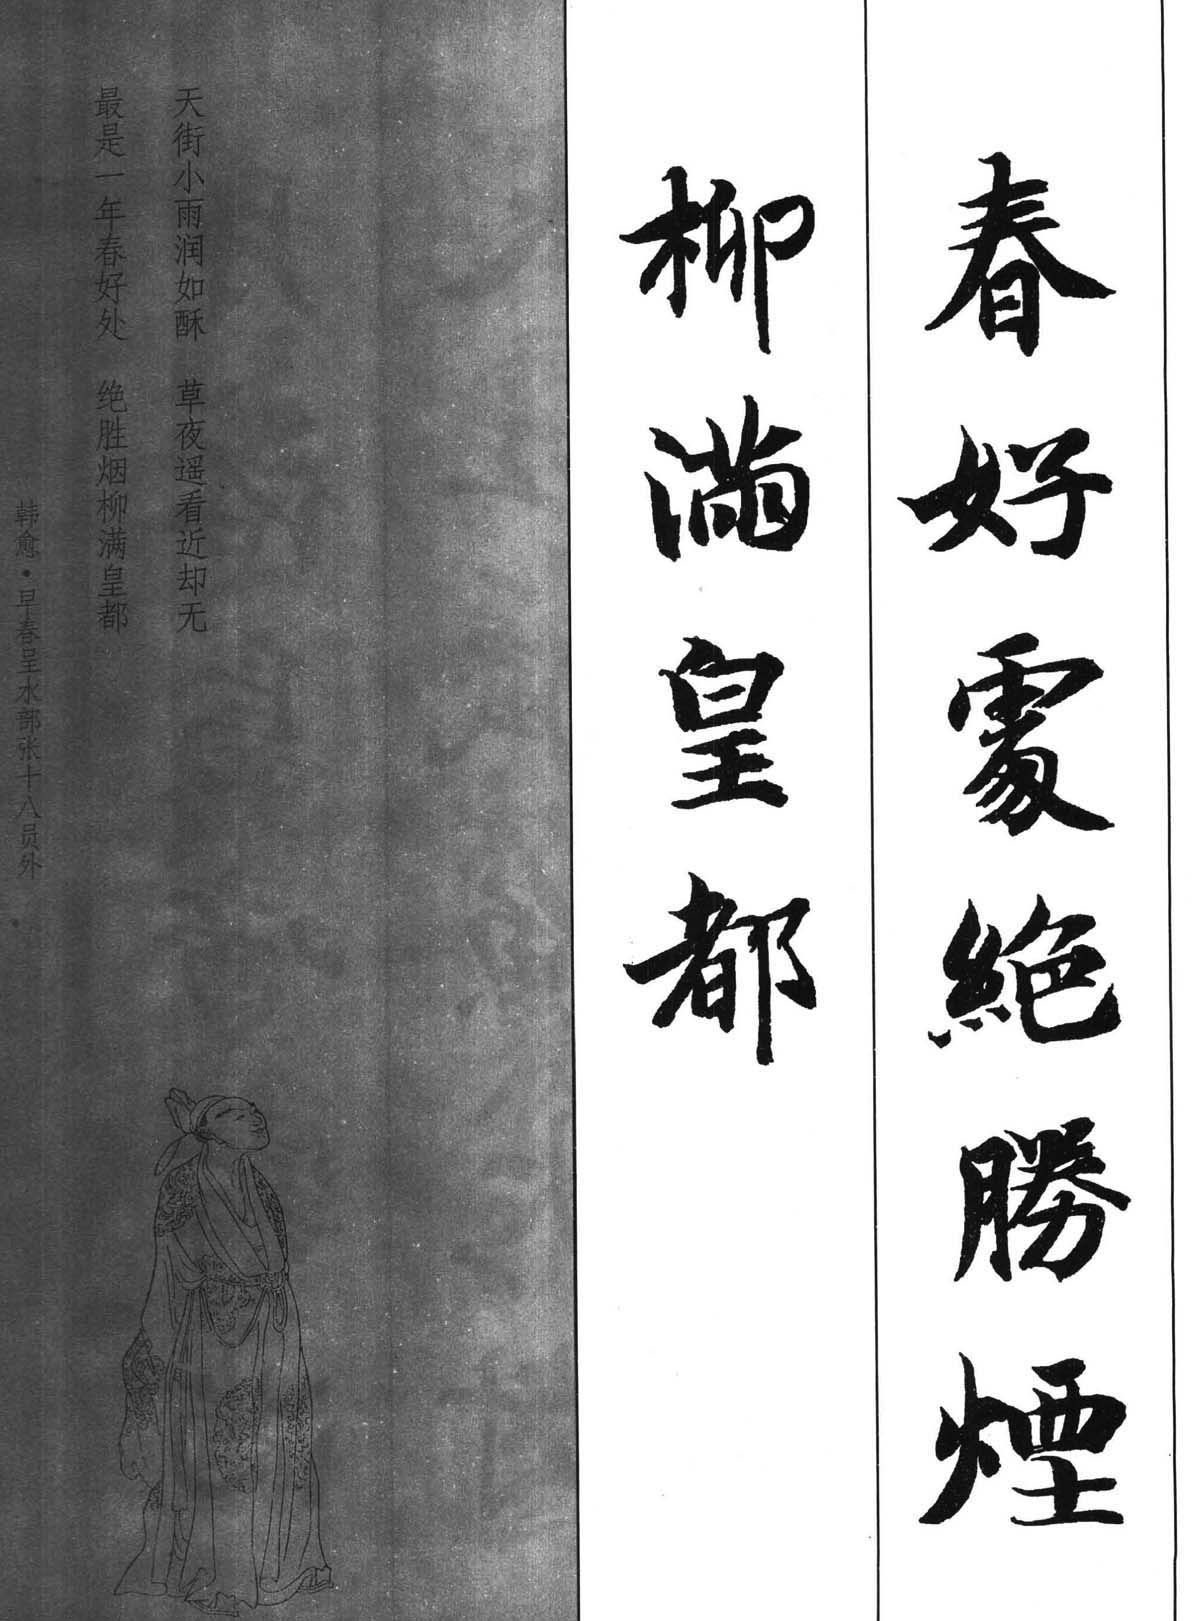 春好處絕勝煙
柳滿皇都
天街小雨润如酥　草夜遥看近却无
最是一年春好处　绝胜烟柳满皇都
韩愈·早春呈水部张十八员外